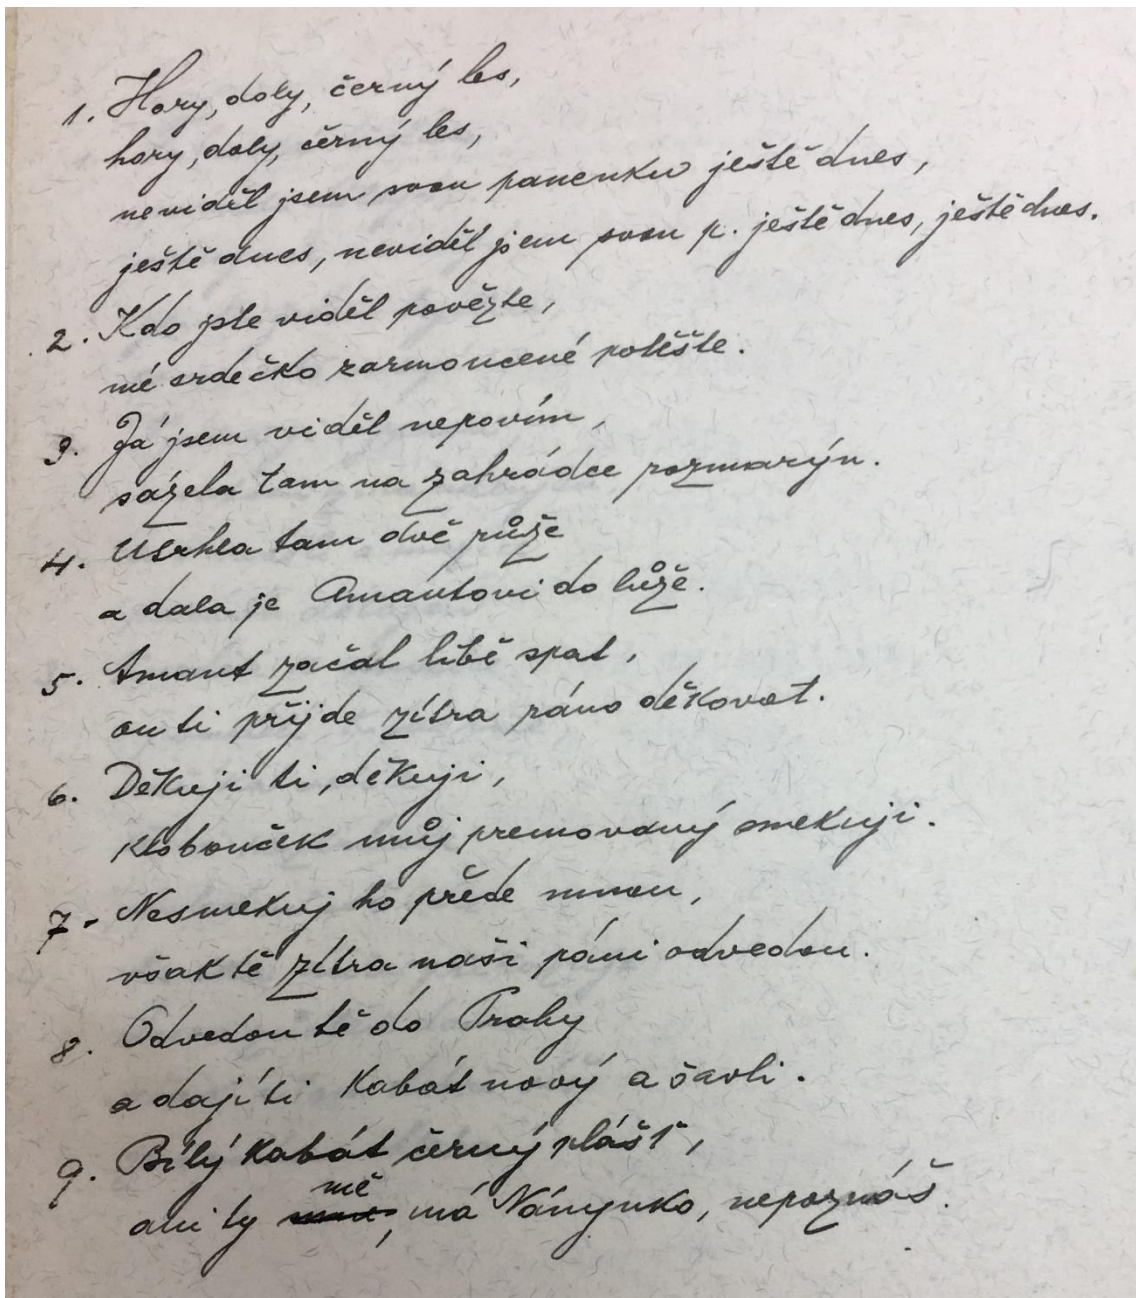 1. Hory, doly, černý les,
hory, doly, černý les,
neviděl jsem svou panenku ještě dnes,
ještě dnes, neviděl jsem svou p. ještě dnes, ještě dnes.
2. Kdo jste viděl povězte,
mé srdéčko zarmoucené potěšte.
3. Já jsem viděl nepovím,
sázela tam na zahrádce rozmarýn.
4. Utrhla tam dvě růže
a dala je Amantovi do lůže.
5. Amant začal libě spat,
on ti přijde zítra ráno děkovat.
6. Děkuji ti, děkuji,
klobouček můj premovaný smekuji.
7. Nesmekuj ho přede mnou,
však tě zítra naši páni odvedou.
8. Odvedou tě do Prahy
a dají ti kabát nový a šavli.
9. Bílý kabát černý plášť,
ani ty mě, má Nánynko, nepoznáš.